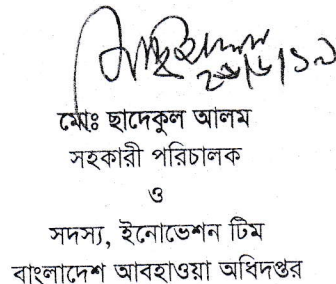 ২০/৬/১৯
মোঃ ছাদেকুল আলম
সহকারী পরিচালক
ও
সদস্য, ইনোভেশন টিম
বাংলাদেশ আবহাওয়া অধিদপ্তর